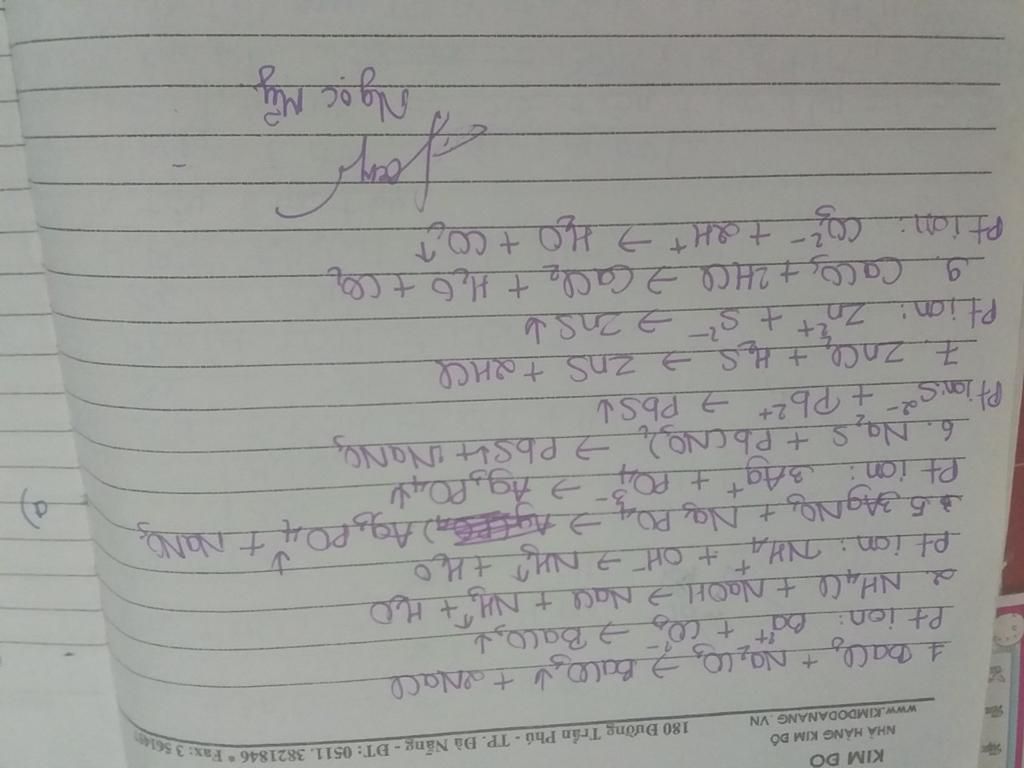 KIM DO
NHÀ HÀNG KIM ĐÔ
WWW.KIMDODANANG.VN
180 Đường Trần Phú - TP. Đà Nẵng - ĐT: 0511. 3821846 * Fax: 3 561
1 BaCl₂ + Na₂CO₃ → BaCO₃↓ + 2NaCl
Pt ion: Ba²⁺ + CO₃²⁻ → BaCO₃↓
2. NH₄Cl + NaOH → NaCl + NH₃↑ + H₂O
Pt ion: NH₄⁺ + OH⁻ → NH₃↑ + H₂O
5 3AgNO₃ + Na₃PO₄ → Ag₃PO₄↓ + NaNO₃
Pt ion: 3Ag⁺ + PO₄³⁻ → Ag₃PO₄↓
6. Na₂S + Pb(NO₃)₂ → PbS↓ + NaNO₃
Pt ion: S²⁻ + Pb²⁺ → PbS↓
7. ZnCl₂ + H₂S → ZnS + 2HCl
Pt ion: Zn²⁺ + S²⁻ → ZnS↓
9. CaCO₃ + 2HCl → CaCl₂ + H₂O + CO₂
Pt ion: CO₃²⁻ + 2H⁺ → H₂O + CO₂↑
Ngọc Mỹ
a)